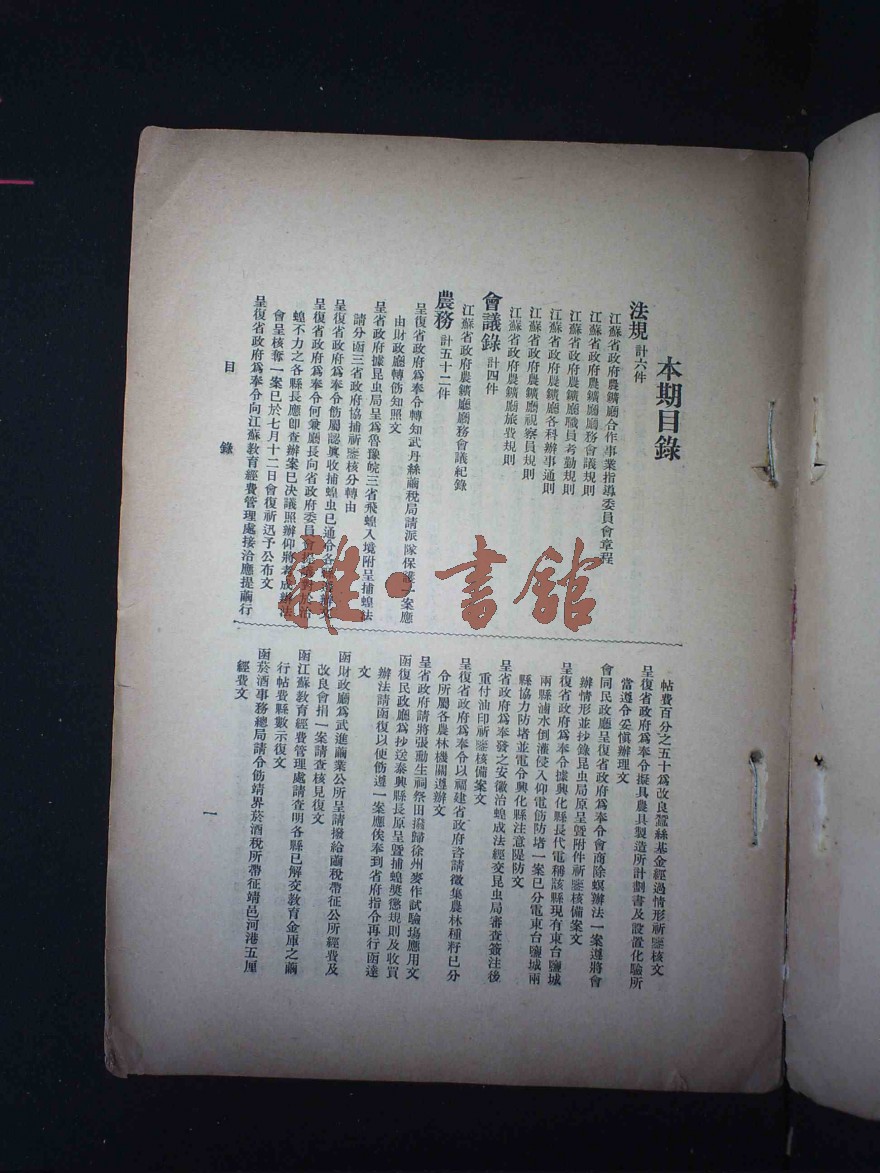 本期目錄
法規 計六件
江蘇省政府農鑛廳合作事業指導委員會章程
江蘇省政府農鑛廳廳務會議規則
江蘇省政府農鑛廳職員考勤規則
江蘇省政府農鑛廳各科辦事通則
江蘇省政府農鑛廳視察員規則
江蘇省政府農鑛廳旅費規則
會議錄 計四件
江蘇省政府農鑛廳廳務會議紀錄
農務 計五十二件
呈復省政府爲奉令轉知武丹絲繭稅局請派隊保護一案應
由財政廳轉飭知照文
呈省政府據昆虫局呈爲魯豫皖三省飛蝗入境附呈捕蝗法
請分函三省政府協捕祈鑒核分轉由
呈復省政府爲奉令飭屬認眞收捕蝗虫已通令各縣
呈復省政府爲奉令何兼廳長向省政府委員會
蝗不力之各縣長應卽查辦案已決議照辦仰將考成辦法
會呈核奪一案已於七月十二日會復祈迅予公布文
呈復省政府爲奉令向江蘇敎育經費管理處接洽應提繭行
帖費百分之五十爲改良蠶絲基金經過情形祈鑒核文
呈復省政府爲奉令擬具農具製造所計劃書及設置化驗所
當遵令妥愼辦理文
會同民政廳呈復省政府爲奉令會商除螟辦法一案遵將會
辦情形並抄錄昆虫局原呈暨附件祈鑒核備案文
呈復省政府爲奉令據興化縣長代電稱該縣現有東台鹽城
兩縣滷水倒灌侵入仰電飭防堵一案已分電東台鹽城兩
縣協力防堵並電令興化縣注意隄防文
呈省政府爲奉發之安徽治蝗成法經交昆虫局審查簽注後
重付油印祈鑒核備案文
呈復省政府爲奉令以福建省政府咨請徵集農林種籽已分
令所屬各農林機關遵辦文
呈省政府請將張勳生祠祭田撥歸徐州麥作試驗塲應用文
函復民政廳爲抄送泰興縣長原呈暨捕蝗奬懲規則及收買
辦法請函復以便飭遵一案應俟奉到省府指令再行函達
文
函財政廳爲武進繭業公所呈請撥給繭稅帶征公所經費及
改良會捐一案請查核見復文
函江蘇敎育經費管理處請查明各縣已解交敎育金庫之繭
行帖費縣數示復文
函菸酒事務總局請令飭靖界菸酒稅所帶征靖邑河港五厘
經費文
目錄
一
雜·書舘